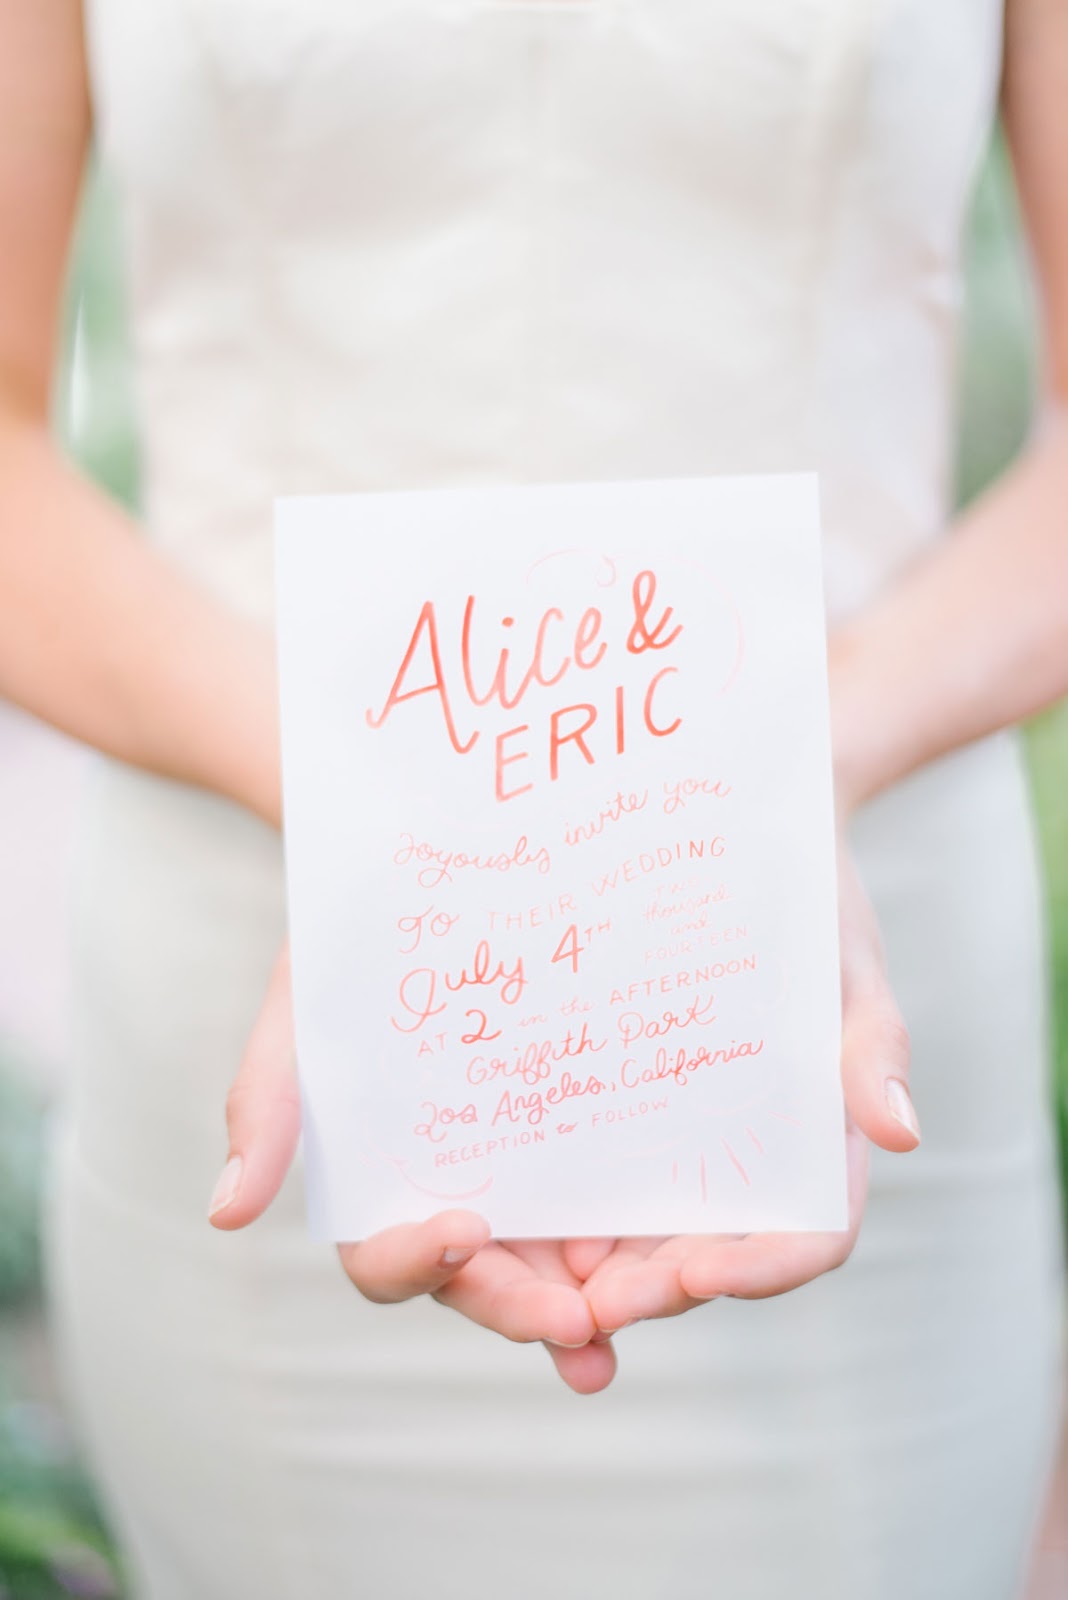 Alice &
ERIC
Joyously invite you
To THEIR WEDDING
July 4TH TWO thousand and FOURTEEN
AT 2 in the AFTERNOON
Griffith Park
Los Angeles, California
RECEPTION to FOLLOW